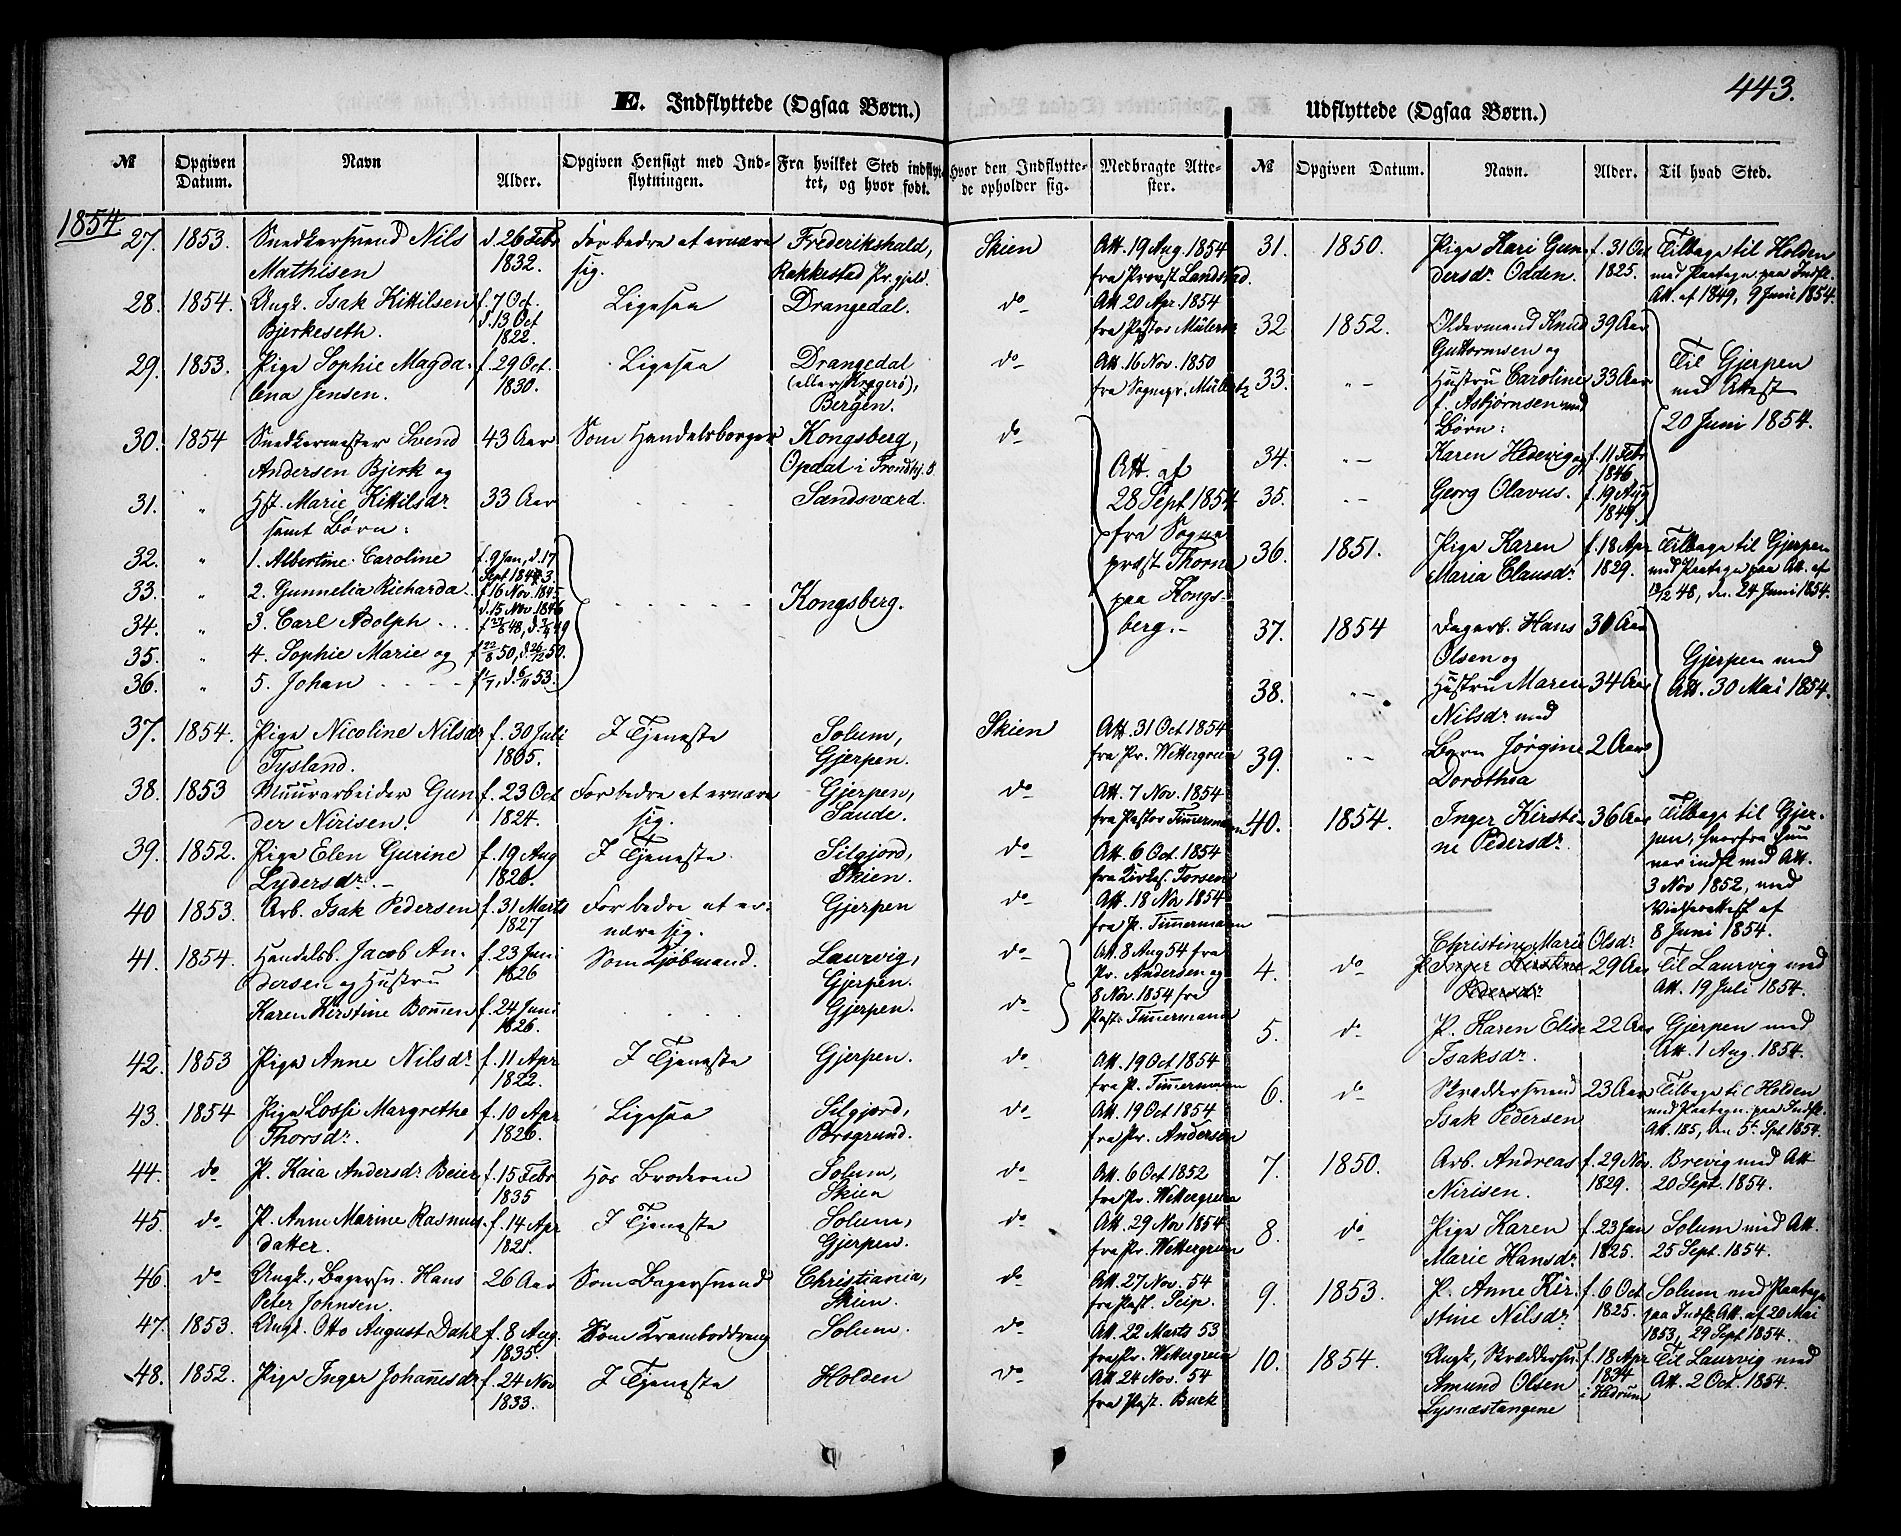 443.
E. Indflyttede (Ogsaa Børn.)
Udflyttede (Ogsaa Børn.)
№ Opgiven Datum. Navn Alder. Opgiven Hensigt med Indflytningen. Fra hvilket Sted indflyttet, og hvor født. Hvor den Indflyttede opholder sig. Medbragte Attester.
1854
27. 1853. Snedkersvend Nils d. 26 Febr For bedre at ernære Frederikshald, Skien Att. 19 Aug. 1854
Mathisen 1832. sig. Rakkestad Pr.gjeld. fra Provst Landstad.
28. 1854. Ungk. Isak Kittilsen f. 7 Oct. Ligesaa Drangedal. do Att. 20 Apr. 1854
Bjerkeseth. d. 13 Oct 1822. fra Pastor Mülertz
29. 1853. Pige Sophie Magda- f. 29 Oct. Ligesaa Drangedal do Att. 16 Nov. 1850
lena Jensen. 1830. (eller Kragerø), Bergen. fra Sognepr. Mülertz
30. 1854 Snedkermester Svend 43 Aar Som Handelsborger Kongsberg, do
Andersen Bjerk og Opdal i Trondhj. S Att. af
31. " Hst. Marie Kittilsdr 33 Aar Sandsværd. 28 Sept 1854
samt Børn: fra Sogne-
32. " 1. Albertine Caroline f. 9 Jan, d. 17 Sept 1843. præst Thorne
33. " 2. Gunnelia Richarda f. 16 Nov. 1845 d. 15 Nov. 1846 Kongsberg. paa Kongs-
34. " 3. Carl Adolph berg.
35. " 4. Sophie Marie og
36. " 5. Johan
37. 1854. Pige Nicoline Nilsdr f. 30 Juli I Tjeneste Solum, Skien Att. 31 Oct 1854
Tysland. Gjerpen. fra Pr. Wettergreen
38. 1853 Muurarbeider Gun f. 23 Oct For bedre at ernære Gjerpen, do Att. 7 Nov. 1854
der Nirisen. 1824. sig. Saude. fra Pastor Timmermann
39. 1852. Pige Elen Gurine f. 19 Aug I Tjeneste Silgjord, do Att. 6 Oct. 1854
Lydersdr. 1826. Skien. fra Kirkes. Torsen
40 1853. Arb. Isak Pedersen f. 31 Marts For bedre at er- Gjerpen do Att. 18 Nov 1854
1827 nære sig. fra P. Timmermann
41. 1854. Handelsb. Jacob An- f. 23 Juni Som Kjøbmand. Laurvig, do Att. 8 Aug 54 fra
dersen og Hustru 1826 Gjerpen. Pr. Andersen og
Karen Kirstine Bommen f. 24 Juni Gjerpen. do 8 Nov. 1854 fra
1826. Past. Timmermann
42. 1853 Pige Anne Nilsdr f. 11 Apr I Tjeneste Gjerpen. do Att. 19 Oct 1854
1822. fra P. Timmermann
43. 1854 Pige Lossi Margrethe f. 10 Apr Ligesaa Silgjord, do Att. 19 Oct 1854
Thorsdr. 1826. Porsgrund. fra Pr. Andersen
44. do P. Kaia Andersdr Beier f. 15 Febr Hos Broderen Solum, do Att. 6 Oct 1852
1835 Skien fra Pr. Wettergreen
45. do P. Anne Marine Rasmus- f. 14 Apr I Tjeneste Solum, do Att. 29 Nov 1854
datter. Gjerpen. fra Pr. Wettergreen
46. do Ungk., Bagersv. Hans 26 Aar Som Bagersvend Christiania, do Att. 27 Nov. 54
Peter Johnsen. Skien. fra Past. Seip.
47. 1853. Ungk. Otto August Dahl f. 8 Aug. Som Kramboddreng Solum. do Att. 22 Marts 53
1835. fra Pr. Wettergreen
48. 1852. Pige Inger Johannesdr f. 24 Nov I Tjeneste Holden do Att 24 Nov. 54
1833. fra Past. Buck
№ Opgiven Datum. Navn. Alder. Til hvad Sted.
31. 1850. Pige Kari Gun- f. 31 Oct Tilbage til Holden
dersdr Odden. 1825. med Paategn. paa Indfl.
Att. af 1849, 9 Junii 1854.
32 1852. Oldermand Knud 39 Aar
Guttormsen og Til Gjerpen
33. " Hustru Caroline 33 Aar med Attest
f. Asbjørnsen med 20 Juni 1854.
Børn:
34. " Karen Hedevig og f. 11 Febr 1846
35. " Georg Olavus. f. 19 Aug 1849.
36. 1851. Pige Karen f. 18 Apr Tilbage til Gjerpen
Maria Clausdr 1829. med Paategn. paa Att. af
13/12 48, den 24 Juni 1854.
37. 1854 Dagarb. Hans 30 Aar
Olsen og Gjerpen med
38. " Hustru Maren 34 Aar Att. 30 Mai 1854.
Nilsdr med
39. " Barn Jørgine 2 Aar
Dorothea
40. 1854. Inger Kirsti- 36 Aar Tilbage til Gjer-
ne Pedersdr. pen, hvorfra hun
var indfl. med Att.
3 Nov 1852, med
Vielseattest af
8 Juni 1854.
Christine Marie Olsdr
4. do P. Inger Kirstine 29 Aar Til Laurvig med
Pedersdr Att. 19 Juli 1854.
5. do P. Karen Elise 22 Aar Gjerpen med
Isaksdr. Att. 1 Aug. 1854.
6. do Skræddersvend 23 Aar Tilbage til Holden
Isak Pedersen med Paategn. paa Indfl.
Att. 185, den 5t Spt 1854.
7. 1850. Arb. Andreas f. 29 Nov. Brevig med Att
Nirisen. 1829. 20 Sept. 1854.
8. do Pige Karen f. 23 Jan Solum med Att.
Marie Hansdr. 1825. 25 Sept. 1854.
9. 1853. P. Anne Kir- f. 6 Oct Solum med Paategn
stine Nilsdr. 1825. paa Indfl. Att. af 20 Mai
1853, 29 Sept 1854.
10. 1854. Ungk., Skræddersv. f. 18 Apr Til Laurvig med
Amund Olsen 1834 Att. 2 Oct. 1854.
Lysnæstangene i Hedrum